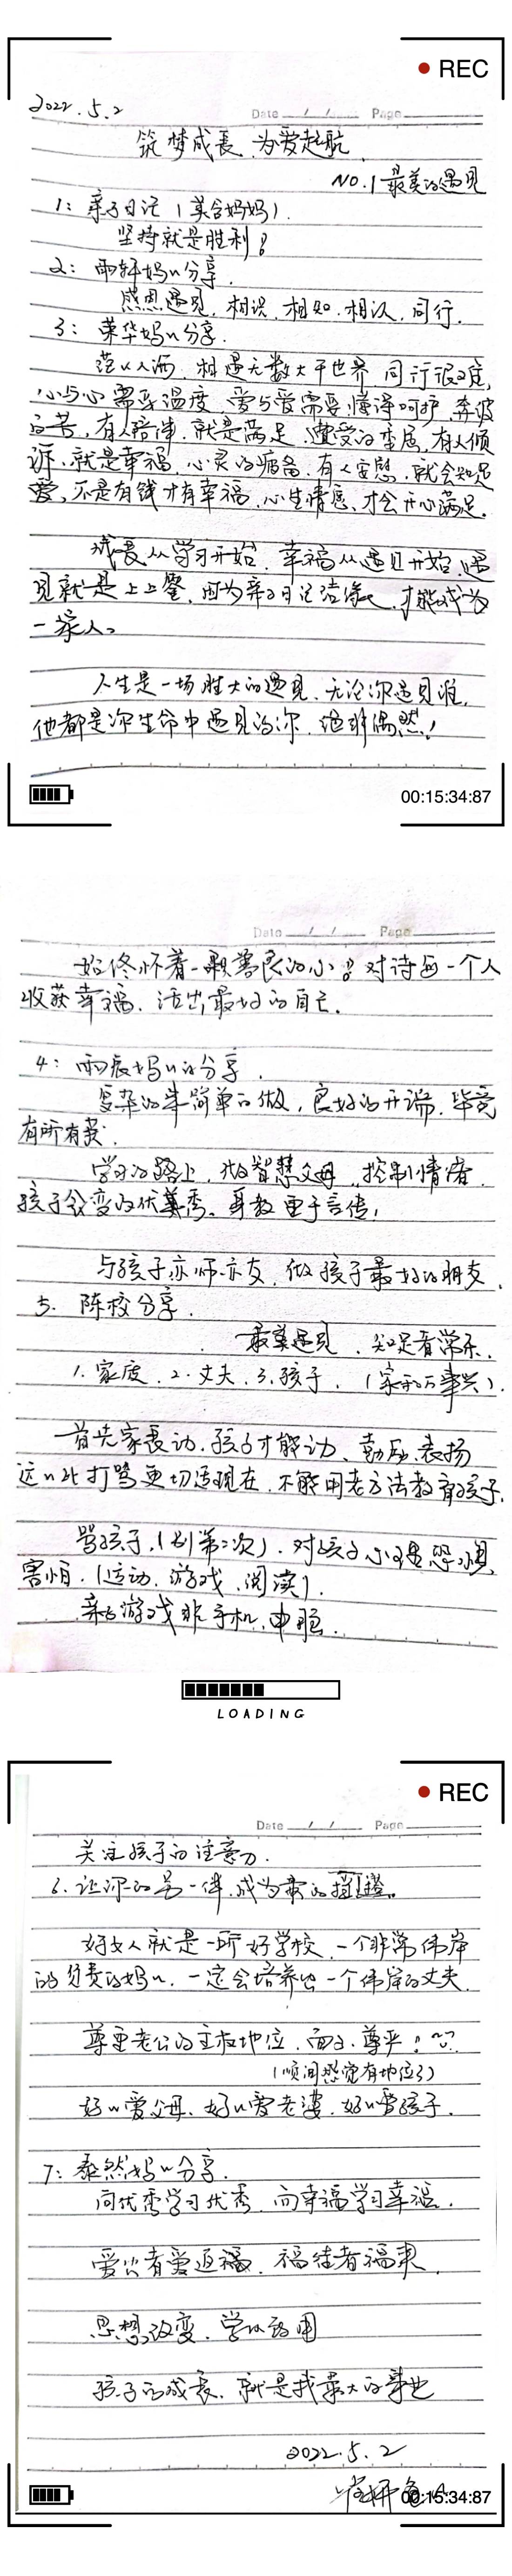 REC
2022.5.2
Date / / Page
筑梦成長、为爱起航
NO.1 最美的遇见
1: 亲子日记(美含妈妈).
坚持就是胜利!
2: 雨轩妈〃分享.
感恩遇见、相识、相知、相认、同行.
3: 荣华妈〃分享.
茫〃人海、相遇无数大千世界、同行很难,
心与心需要温度、爱与爱需要懂得呵护、奔波
的苦、有人陪伴、就是满足、遭受的委屈、有人倾
诉、就是幸福、心灵的痛苦、有人安慰、就会知足
爱、不是有钱才有幸福、心生情愿、才会开心满足.
成長从学习开始、幸福从遇见开始、遇
见就是上上签、因为亲子日记结缘、才能成为
一家人。
人生是一场胜大的遇见、无论你遇见谁,
他都是你生命中遇见的你、绝非偶然!
00:15:34:87
Date / / Page
始终怀着一颗善良的心!对待每一个人
收获幸福、活出最好的自己.
4: 雨辰妈〃的分享.
复杂的事简单的做,良好的开端、毕竟
有所有获.
学习的路上、做智慧父母、控制情绪.
孩子会变的优秀、身教重于言传!
与孩子亦师亦友、做孩子最好的朋友.
5. 陈校分享.
最美遇见、知足者常乐.
1.家庭、2.丈夫、3.孩子、(家和万事兴).
首先家長动、孩子才能动、鼓励、表扬
远〃比打骂更切适现在、不能用老方法教育孩子.
骂孩子,(别第二次)、对孩子心理恐惧,
害怕、(运动、游戏、阅读).
亲子游戏非手机、电脑.
LOADING
REC
Date / / Page
关注孩子的注意力.
6. 让你的另一伴、成为家的
好女人就是一所好学校、一个非常伟岸
的负责的妈〃、一定会培养出一个伟岸的丈夫.
尊重老公的主权地位、面子、尊严!
(顺间感觉有地位了)
好〃爱父母、好〃爱老婆、好〃爱孩子.
7: 泰然妈〃分享.
向优秀学习优秀、向幸福学习幸福.
爱出者爱返福、福往者福来.
思想改变、学以致用
孩子的成長、就是我最大的事业
2022.5.2
00:15:34:87